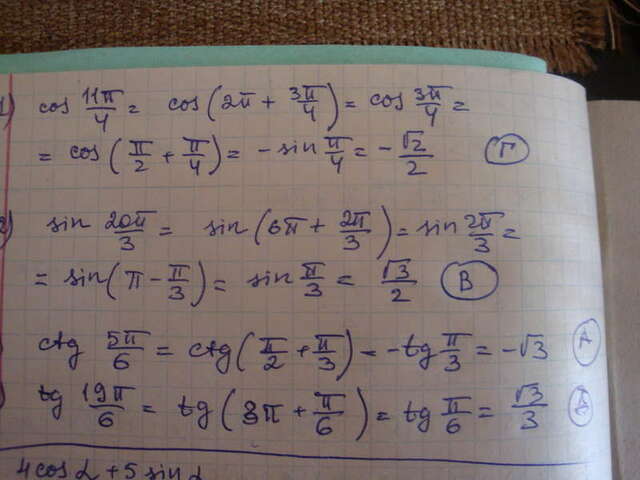 1) cos 11π/4 = cos(2π + 3π/4) = cos 3π/4 =
= cos(π/2 + π/4) = - sin π/4 = - √2/2 Г
2) sin 20π/3 = sin(6π + 2π/3) = sin 2π/3 =
= sin(π - π/3) = sin π/3 = √3/2 В
ctg 5π/6 = ctg(π/2 + π/3) = -tg π/3 = -√3 А
tg 19π/6 = tg(3π + π/6) = tg π/6 = √3/3 Д
4cos α + 5 sin α